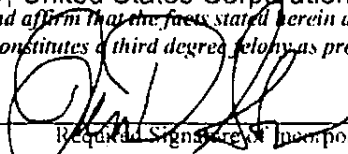 , United States Corporation
nd affirm that the facts stated herein a
onstitutes a third degree felony as pro
Required Signature of Incorpo